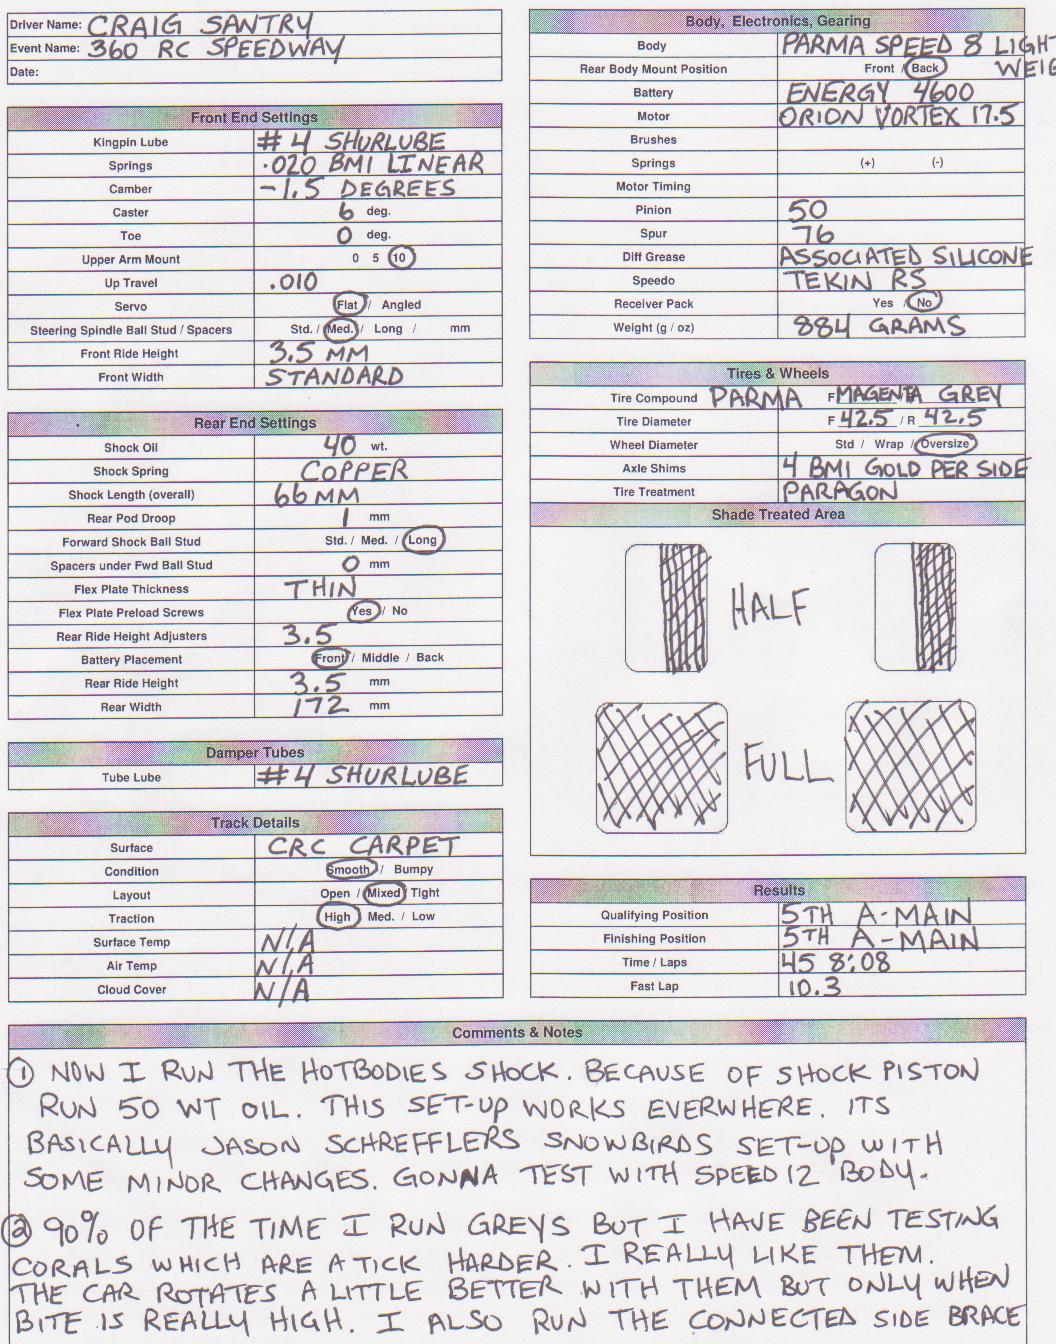 Driver Name: CRAIG SANTRY
Event Name: 360 RC SPEEDWAY
Date:
Front End Settings
Kingpin Lube #4 SHURLUBE
Springs .020 BMI LINEAR
Camber -1.5 DEGREES
Caster 6 deg.
Toe 0 deg.
Upper Arm Mount 0 5 10
Up Travel .010
Servo Flat / Angled
Steering Spindle Ball Stud / Spacers Std. / Med. / Long / mm
Front Ride Height 3.5 MM
Front Width STANDARD
Rear End Settings
Shock Oil 40 wt.
Shock Spring COPPER
Shock Length (overall) 66 MM
Rear Pod Droop 1 mm
Forward Shock Ball Stud Std. / Med. / Long
Spacers under Fwd Ball Stud 0 mm
Flex Plate Thickness THIN
Flex Plate Preload Screws Yes / No
Rear Ride Height Adjusters 3.5
Battery Placement Front / Middle / Back
Rear Ride Height 3.5 mm
Rear Width 172 mm
Damper Tubes
Tube Lube #4 SHURLUBE
Track Details
Surface CRC CARPET
Condition Smooth / Bumpy
Layout Open / Mixed / Tight
Traction High / Med. / Low
Surface Temp N/A
Air Temp N/A
Cloud Cover N/A
Body, Electronics, Gearing
Body PARMA SPEED 8 LIGHT
Rear Body Mount Position Front / Back WEIG
Battery ENERGY 4600
Motor ORION VORTEX 17.5
Brushes
Springs (+) (-)
Motor Timing
Pinion 50
Spur 76
Diff Grease ASSOCIATED SILICONE
Speedo TEKIN RS
Receiver Pack Yes / No
Weight (g / oz) 884 GRAMS
Tires & Wheels
Tire Compound PARMA F MAGENTA GREY
Tire Diameter F 42.5 / R 42.5
Wheel Diameter Std / Wrap / Oversize
Axle Shims 4 BMI GOLD PER SIDE
Tire Treatment PARAGON
Shade Treated Area
HALF
FULL
Results
Qualifying Position 5TH A-MAIN
Finishing Position 5TH A-MAIN
Time / Laps 45 8:08
Fast Lap 10.3
Comments & Notes
① NOW I RUN THE HOTBODIES SHOCK. BECAUSE OF SHOCK PISTON
RUN 50 WT OIL. THIS SET-UP WORKS EVERWHERE. ITS
BASICALLY JASON SCHREFFLERS SNOWBIRDS SET-UP WITH
SOME MINOR CHANGES. GONNA TEST WITH SPEED 12 BODY.
② 90% OF THE TIME I RUN GREYS BUT I HAVE BEEN TESTING
CORALS WHICH ARE A TICK HARDER. I REALLY LIKE THEM.
THE CAR ROTATES A LITTLE BETTER WITH THEM BUT ONLY WHEN
BITE IS REALLY HIGH. I ALSO RUN THE CONNECTED SIDE BRACE